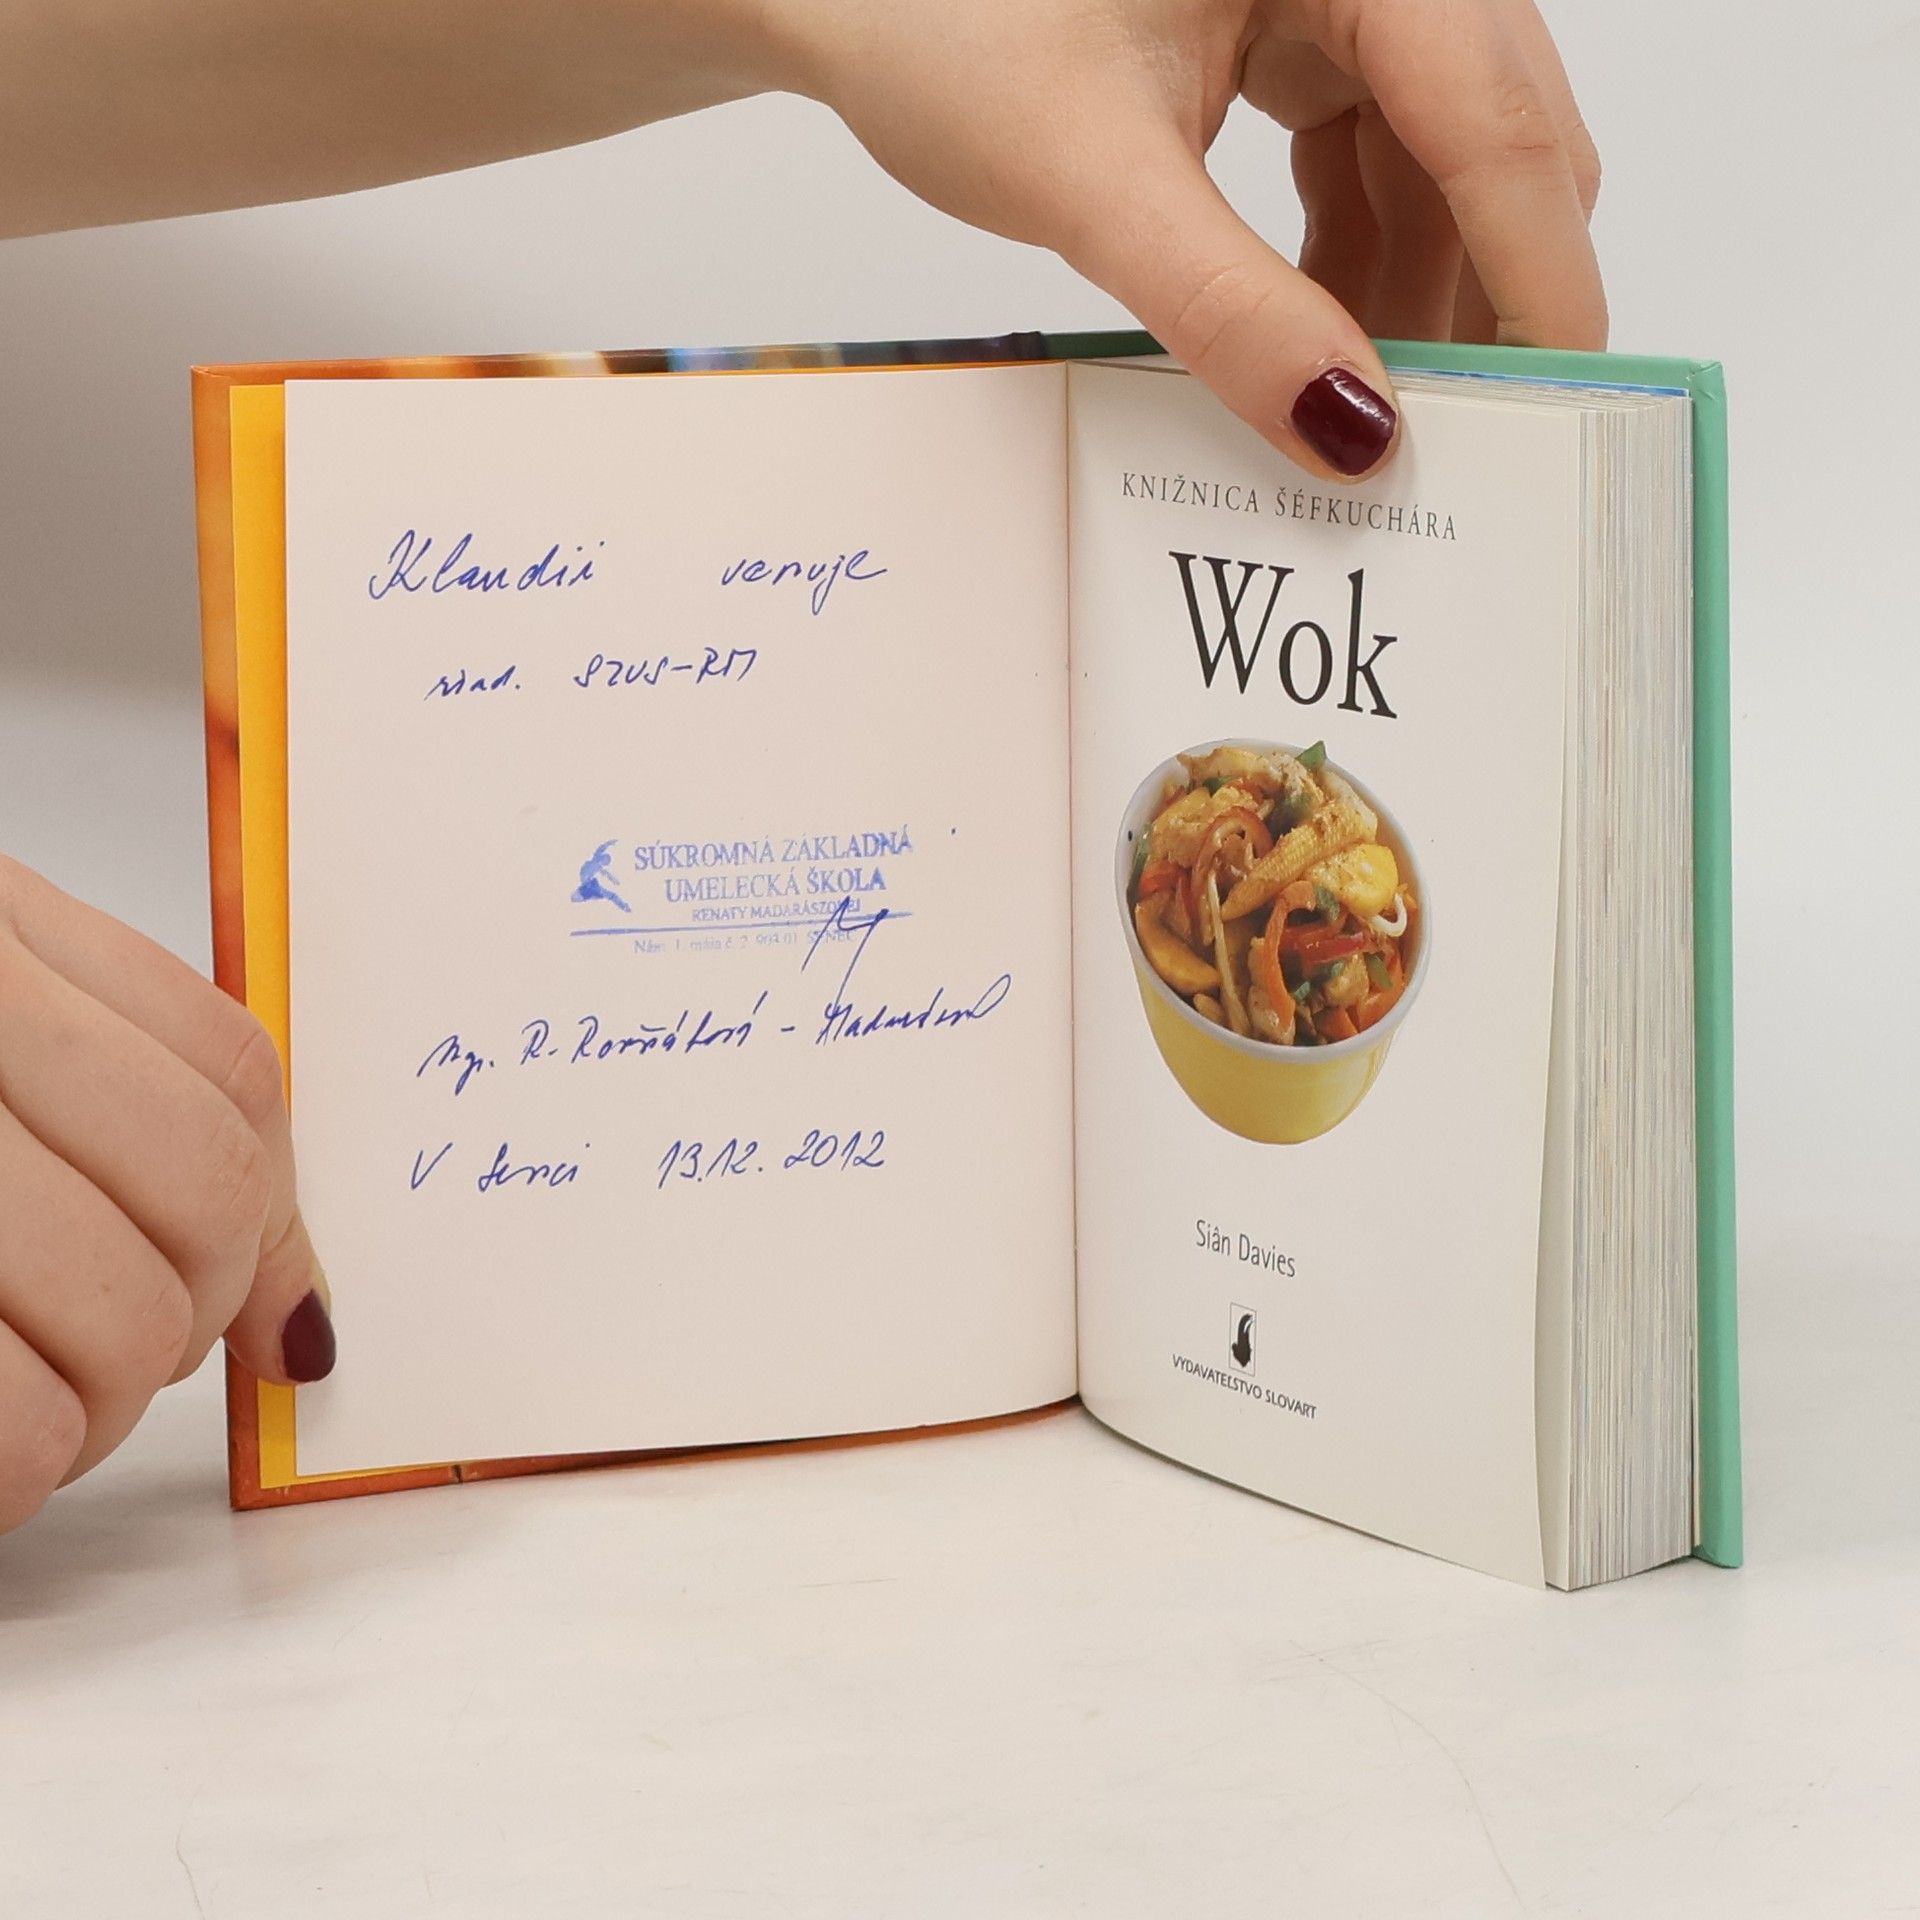 Klaudii venuje
riad. SZUŠ-RM
SÚKROMNÁ ZÁKLADNÁ
UMELECKÁ ŠKOLA
RENATY MADARÁSZOVEJ
Nám. 1. mája č. 2, 903 01 SENEC
Mgr. R.
V Senci 13.12.2012
KNIŽNICA ŠÉFKUCHÁRA
Wok
Siân Davies
VYDAVATEĽSTVO SLOVART